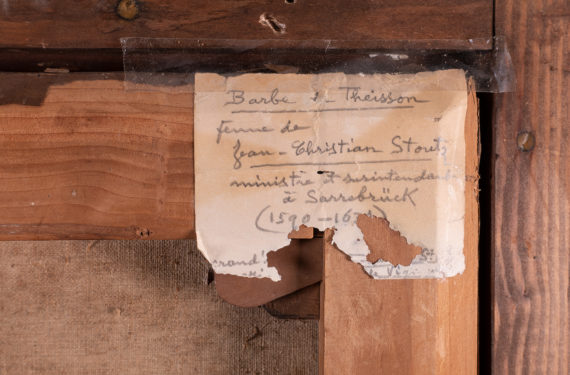 Barbe Theisson
femme de
Jean-Christian Stoutz
ministre et surintendant
à Sarrebrück
(1590-16